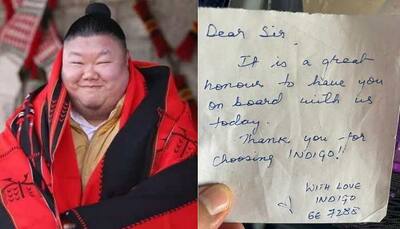 Dear Sir,
It is a great
honour to have you
on board with us
today.
Thank you for
choosing INDIGO!
WITH LOVE
INDIGO
6E 7288